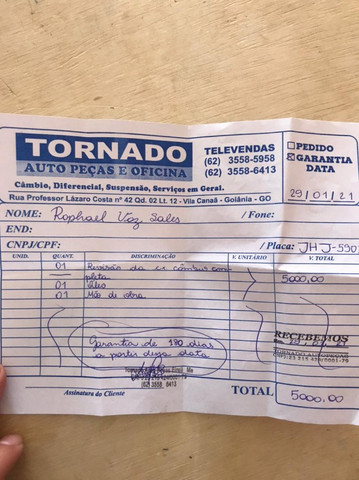 TORNADO
AUTO PEÇAS E OFICINA
TELEVENDAS
(62) 3558-5958
(62) 3558-6413
PEDIDO
GARANTIA
DATA
Câmbio, Diferencial, Suspensão, Serviços em Geral.
29/01/21
Rua Professor Lázaro Costa nº 42 Qd. 02 Lt. 12 - Vila Canaã - Goiânia - GO
NOME: Raphael Vaz Sales / Fone:
END:
CNPJ/CPF: / Placa: JHJ-590
UNID. QUANT. DISCRIMINAÇÃO V. UNITÁRIO V. TOTAL
01 Revisão da cx câmbio com
pleta 5000,00
01 Óleo
01 Mão de obra
Garantia de 180 dias
a partir dessa data
RECEBEMOS
TORNADO AUTOPEÇAS
(62) 3558 6413
Assinatura do Cliente
TOTAL 5000,00